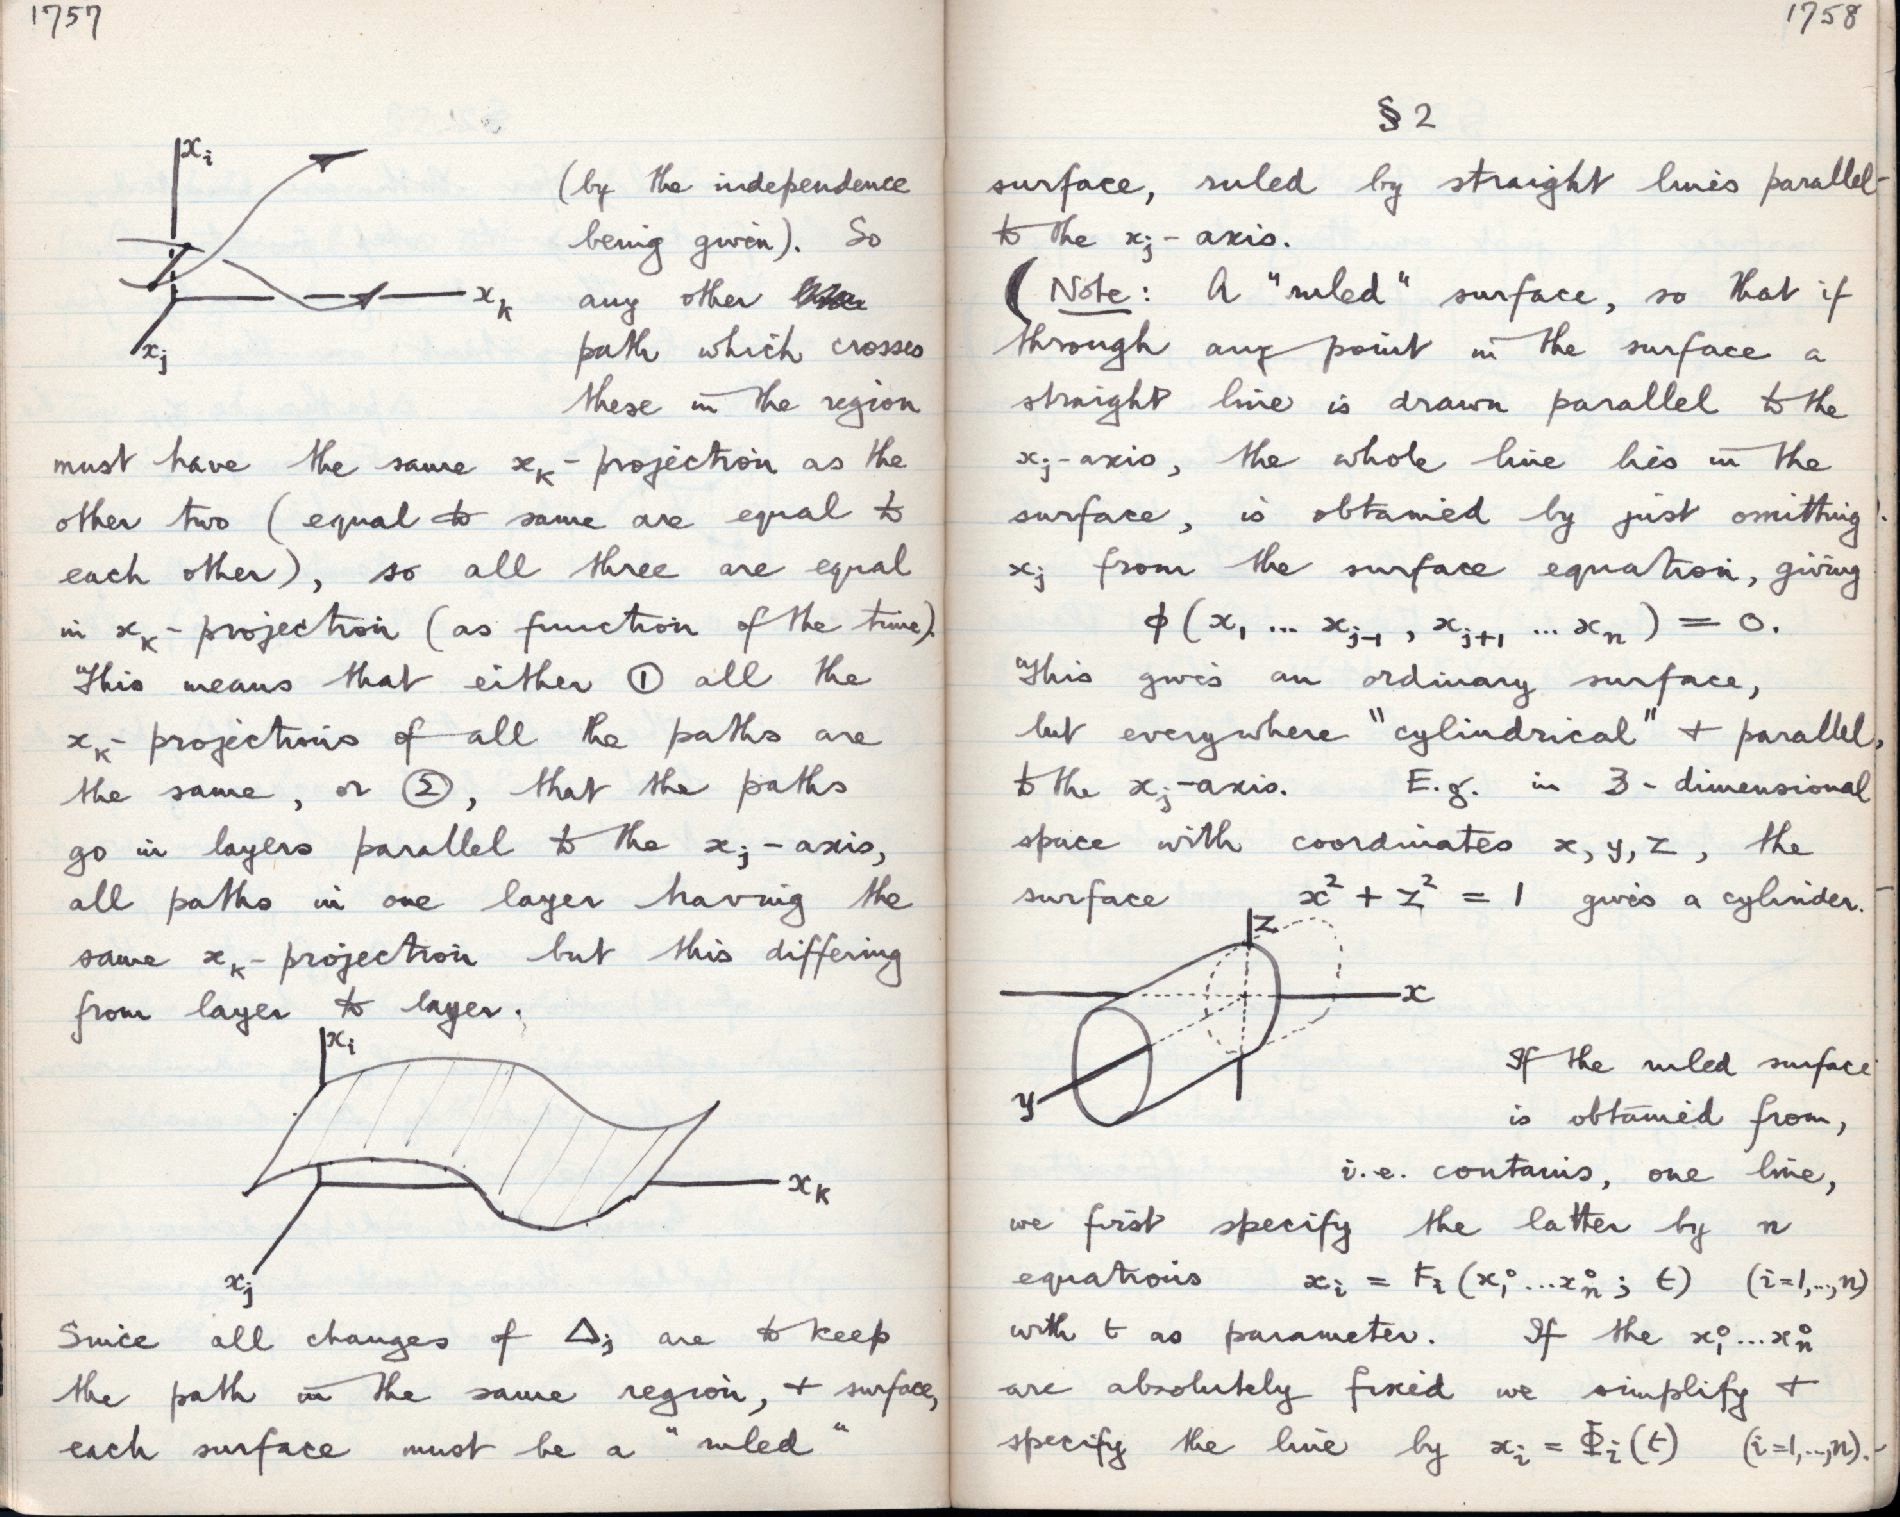 1757
xᵢ
xₖ
xⱼ
(by the independence
being given). So
any other
path which crosses
these in the region
must have the same xₖ-projection as the
other two (equal to same are equal to
each other), so all three are equal
in xₖ-projection (as function of the time).
This means that either ① all the
xₖ-projections of all the paths are
the same, or ②, that the paths
go in layers parallel to the xⱼ-axis,
all paths in one layer having the
same xₖ-projection but this differing
from layer to layer.
xᵢ
xₖ
xⱼ
Since all changes of Δⱼ are to keep
the path in the same region, + surface,
each surface must be a "ruled"
1758
§2
surface, ruled by straight lines parallel
to the xⱼ-axis.
(Note: A "ruled" surface, so that if
through any point in the surface a
straight line is drawn parallel to the
xⱼ-axis, the whole line lies in the
surface, is obtained by just omitting
xⱼ from the surface equation, giving
ϕ(x₁ ... xⱼ₋₁, xⱼ₊₁ ... xₙ) = 0.
This gives an ordinary surface,
but everywhere "cylindrical" + parallel,
to the xⱼ-axis. E.g. in 3-dimensional
space with coordinates x, y, z, the
surface x² + z² = 1 gives a cylinder.
z
x
y
If the ruled surface
is obtained from,
i.e. contains, one line,
we first specify the latter by n
equations xᵢ = Fᵢ(x₁⁰...xₙ⁰; t) (i=1,..,n)
with t as parameter. If the x₁⁰...xₙ⁰
are absolutely fixed we simplify +
specify the line by xᵢ = Φᵢ(t) (i=1,..,n).